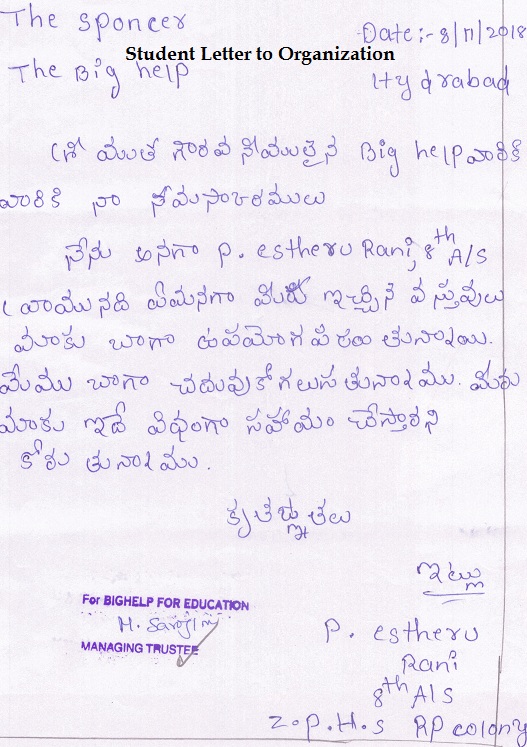 The Sponcer
Date :- 8/11/2018
Student Letter to Organization
The Big help
Hydrabad
శ్రీ ముత గౌరవ నీయులైన Big help వారికి
వారికి నా నమసాంరములు
నేను అనగా P. estheru Rani, 8th A/S
వ్రాయునది ఏమనగా మీరు ఇచ్చిన వస్తువులు
మాకు బాగా ఉపయోగ పరుతునాయి.
మేము బాగా చదువుకో గలుసతునాము. మీరు
మాకు ఇదే విధంగా సహాయం చేస్తారని
కోరుతునాము.
కృతజ్ఞతలు
ఇట్లు
For BIGHELP FOR EDUCATION
M. Sarojini
MANAGING TRUSTEE
P. estheru
Rani
8th A/S
Z.P.H.S RP colony